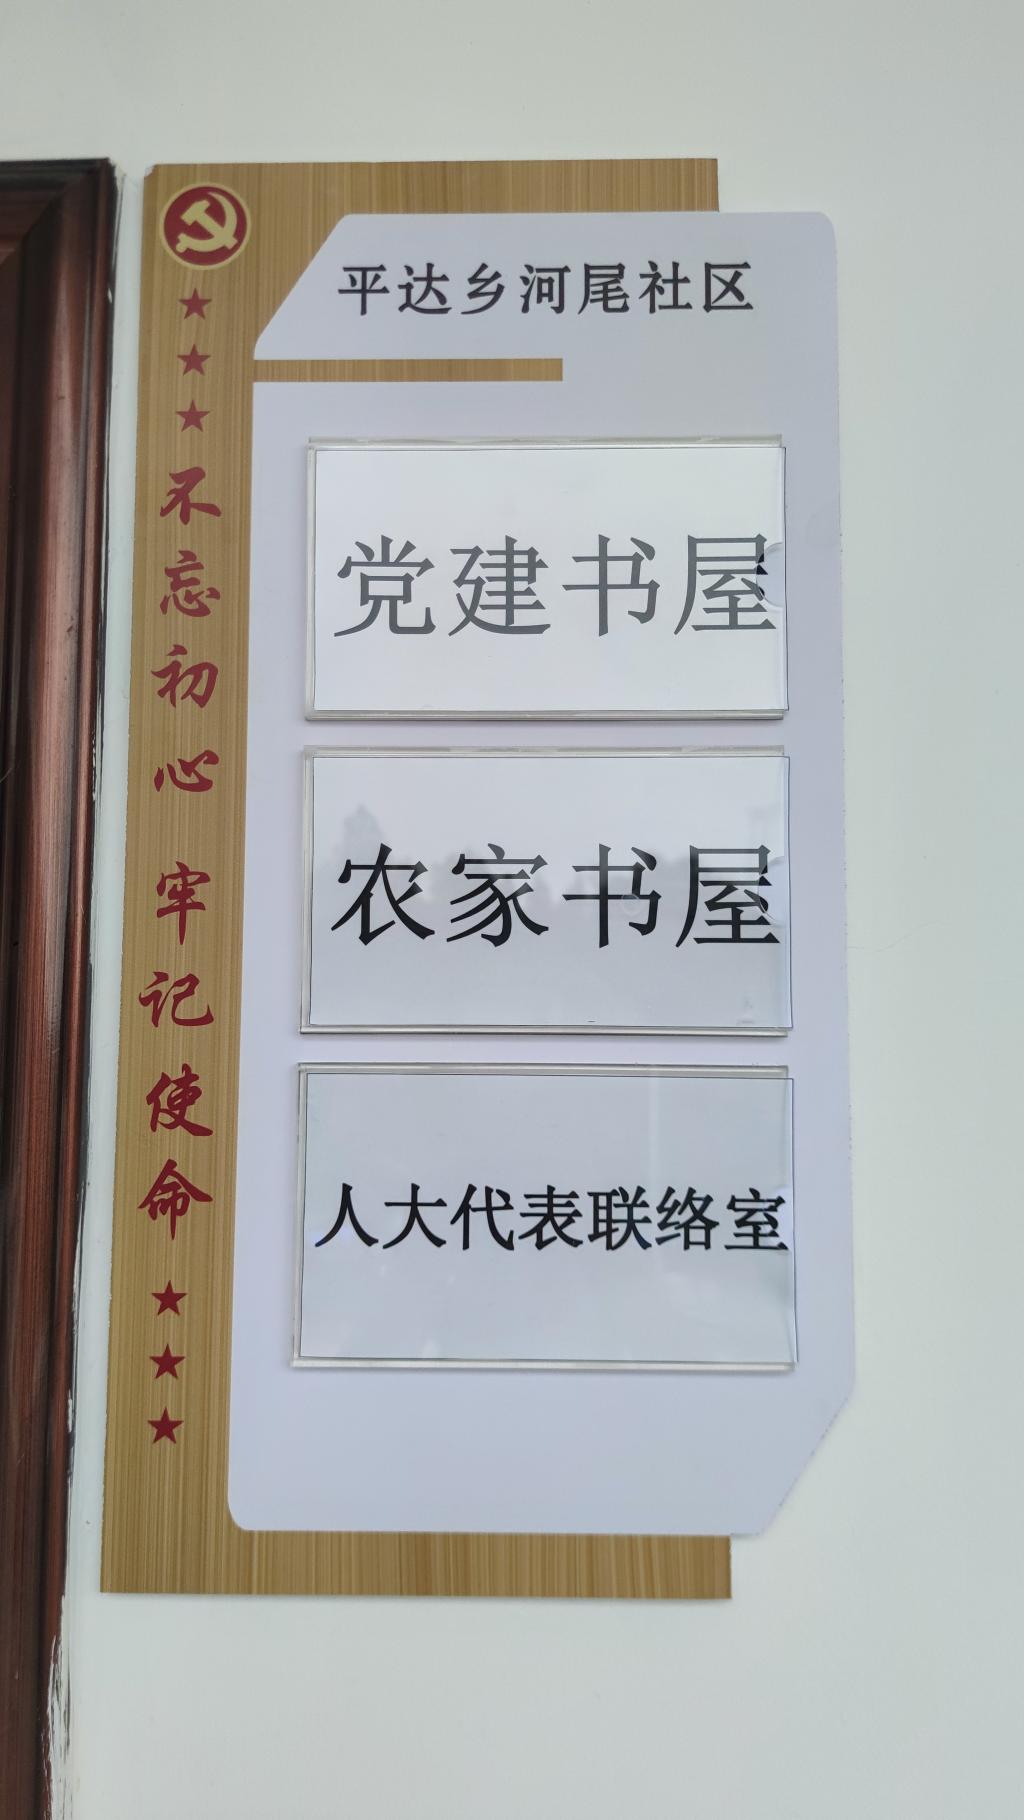 平达乡河尾社区
不忘初心 牢记使命
党建书屋
农家书屋
人大代表联络室